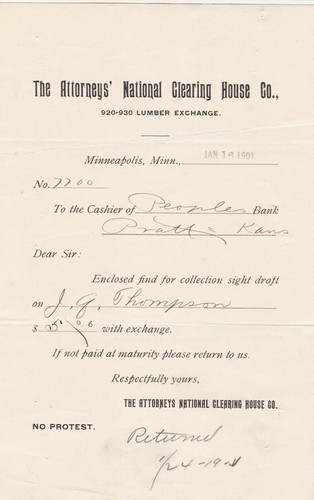 The Attorneys' National Clearing House Co.,
920-930 LUMBER EXCHANGE.
Minneapolis, Minn., JAN 18 1901
No. 7700
To the Cashier of Peoples Bank
Pratt - Kans
Dear Sir:
Enclosed find for collection sight draft
on J. G. Thompson
$ 5 00 with exchange.
If not paid at maturity please return to us.
Respectfully yours,
THE ATTORNEYS NATIONAL CLEARING HOUSE CO.
NO PROTEST.
Returned
1/24-1901